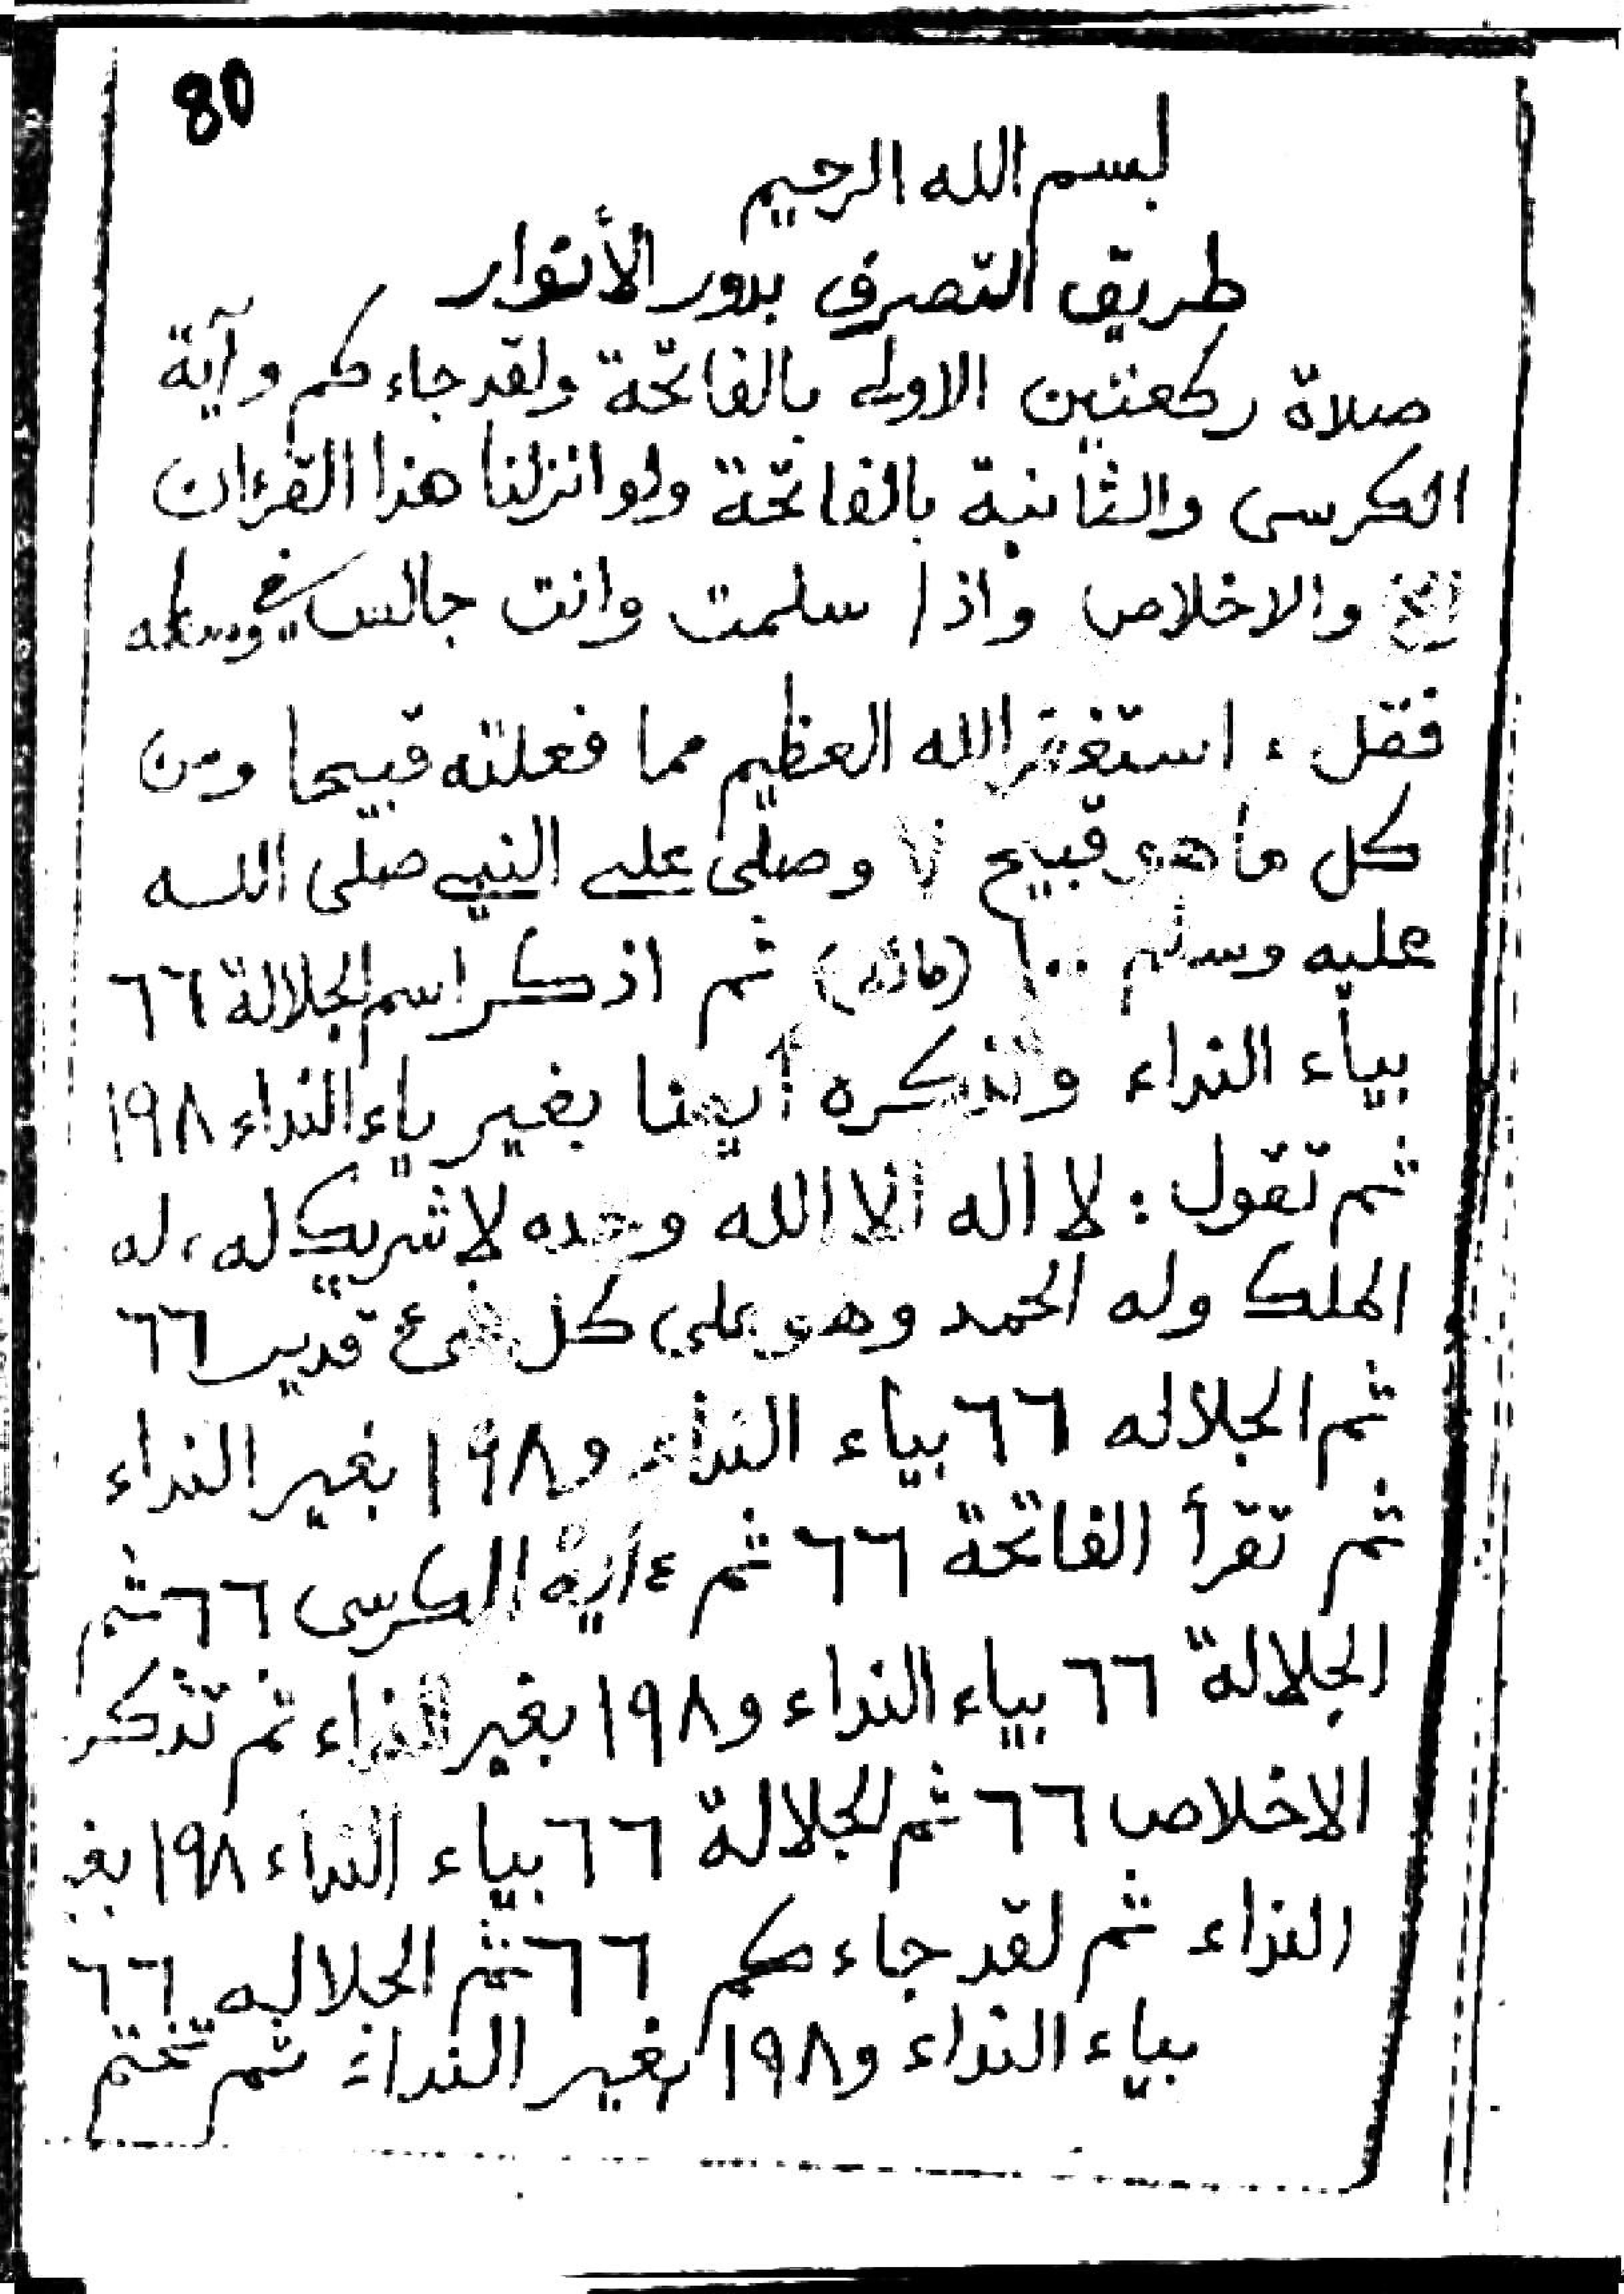 80
بسم الله الرحيم
طريق التصرف بدور الأنوار
صلاة ركعتين الاولى بالفاتحة ولقد جاءكم وآية
الكرسى والثانية بالفاتحة ولو انزلنا هذا القرءان
الخ والاخلاص واذا سلمت وانت جالس في وسطه
فقل، استغفر الله العظيم مما فعلته قبيحا ومن
كل ما هو قبيح ٧ وصلى على النبي صلى الله
عليه وسلم ١٠٠ (مائة) ثم اذكر اسم الجلالة ٦٦
بياء النداء وتذكره أيضا بغير ياء النداء ١٩٨
ثم تقول: لا اله الا الله وحده لا شريك له، له
الملك وله الحمد وهو على كل شىء قدير ٦٦
ثم الجلاله ٦٦ بياء النداء و١٩٨ بغير النداء
ثم تقرأ الفاتحة ٦٦ ثم ءاية الكرسى ٦٦ ثم
الجلالة ٦٦ بياء النداء و١٩٨ بغير النداء ثم تذكر
الاخلاص ٦٦ ثم الجلالة ٦٦ بياء النداء ١٩٨ بغير
النداء ثم لقد جاءكم ٦٦ ثم الجلاله ٦٦
بياء النداء و١٩٨ بغير النداء ثم تختم